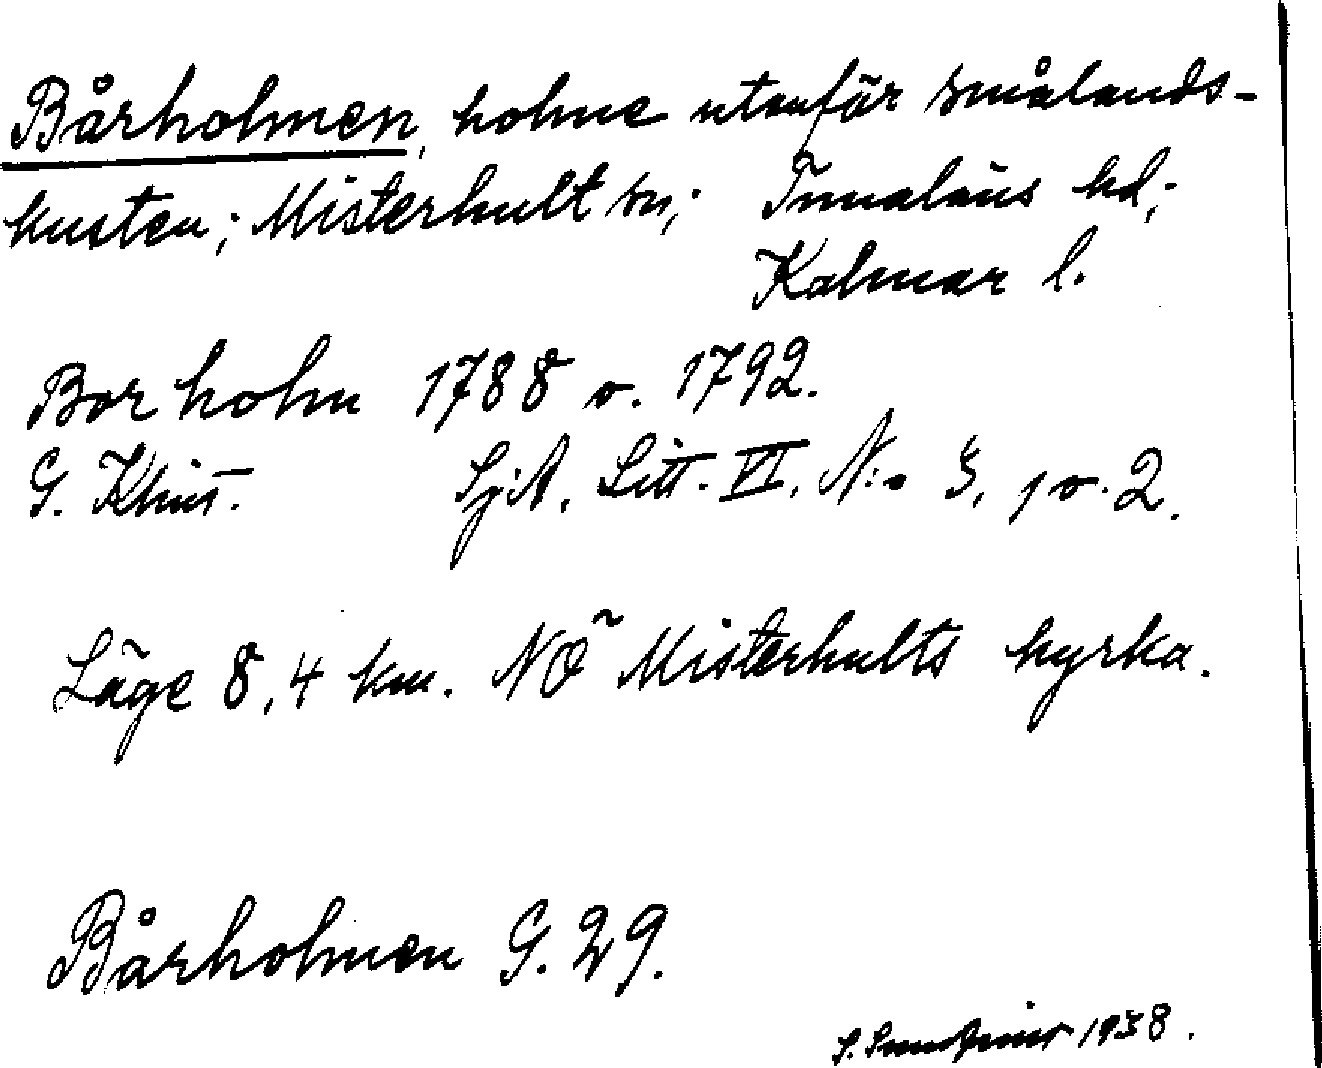 Bårholmen, holme utanför smålands-
kusten; Misterhult sn; Tunaläns hd;
Kalmar l.
Borholm 1788 o. 1792.
G. Klint. Sj.A. Litt. VI. N:o 3, 1 o. 2.
Läge 8,4 km. NÖ Misterhults kyrka.
Bårholmen G. 29.
S. 1938.